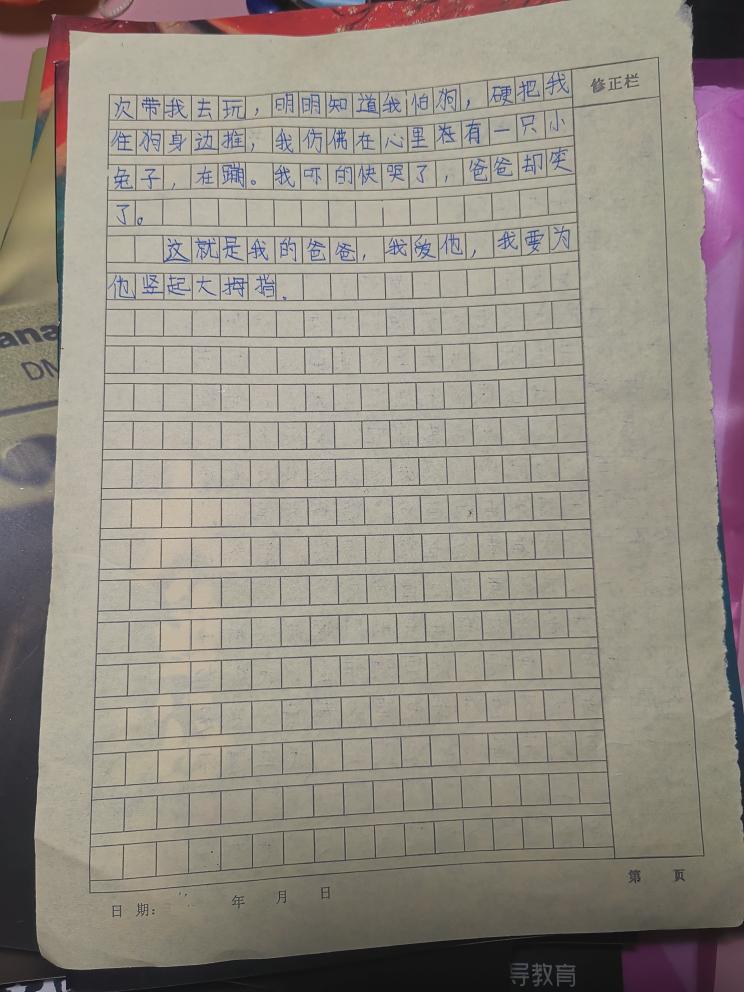 修正栏
次带我去玩，明明知道我怕狗，硬把我
住狗身边推，我仿佛在心里有一只小
兔子，在蹦。我吓的快哭了，爸爸却笑
了。
这就是我的爸爸，我爱他，我要为
他竖起大拇指.
第 页
日 期： 年 月 日
ana
DM
导教育